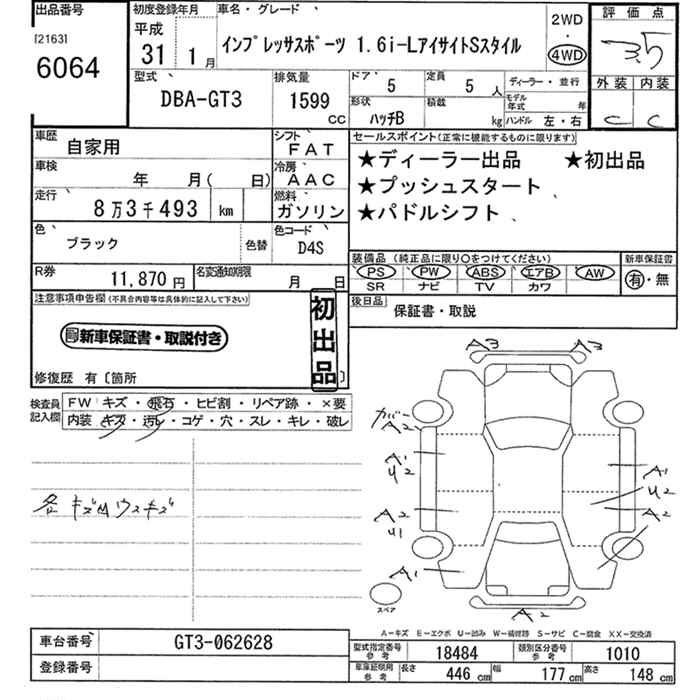 出品番号 初度登録年月 車名・グレード 2WD 評価点
[2163] 平成 ・ 3.5
6064 31 1月 インプレッサスポーツ 1.6i-LアイサイトSスタイル 4WD
型式 排気量 ドア 5 定員 5人 ディーラー・並行 外装 内装
DBA-GT3 1599 CC 形状 ハッチB 積載 kg モデル年式 年 C C
ハンドル 左・右
車歴 自家用 シフト FAT セールスポイント(正常に機能するものに限ります)
車検 年 月( 日) 冷房 AAC ★ディーラー出品 ★初出品
走行 8万3千493 km 燃料 ガソリン ★プッシュスタート
★パドルシフト
色 ブラック 色替 色コード D4S
装備品 (純正品に限り○をつけてください) 新車保証書
R券 11,870円 名変通知期限 月 日 PS PW ABS エアB AW 有・無
SR ナビ TV カワ
注意事項申告欄(不具合内容等は具体的に記入して下さい) 後日品 保証書・取説
新車保証書・取説付き 初出品
修復歴 有〔箇所 〕
検査員記入欄 FW キズ・飛石・ヒビ割・リペア跡・×要
内装 キズ・汚レ・コゲ・穴・スレ・キレ・破レ
A3 A3
カバー A2
A1 U2 A1 U2
各キズ凹ウスキズ
A2 U1 A2
A1
スペア A2
A-キズ E-エクボ U-凹み W-補修跡 S-サビ C-腐食 XX-交換済
車台番号 GT3-062628 型式指定番号 参考 18484 類別区分番号 参考 1010
登録番号 車庫証明用 参考 長さ 446cm 幅 177cm 高さ 148cm